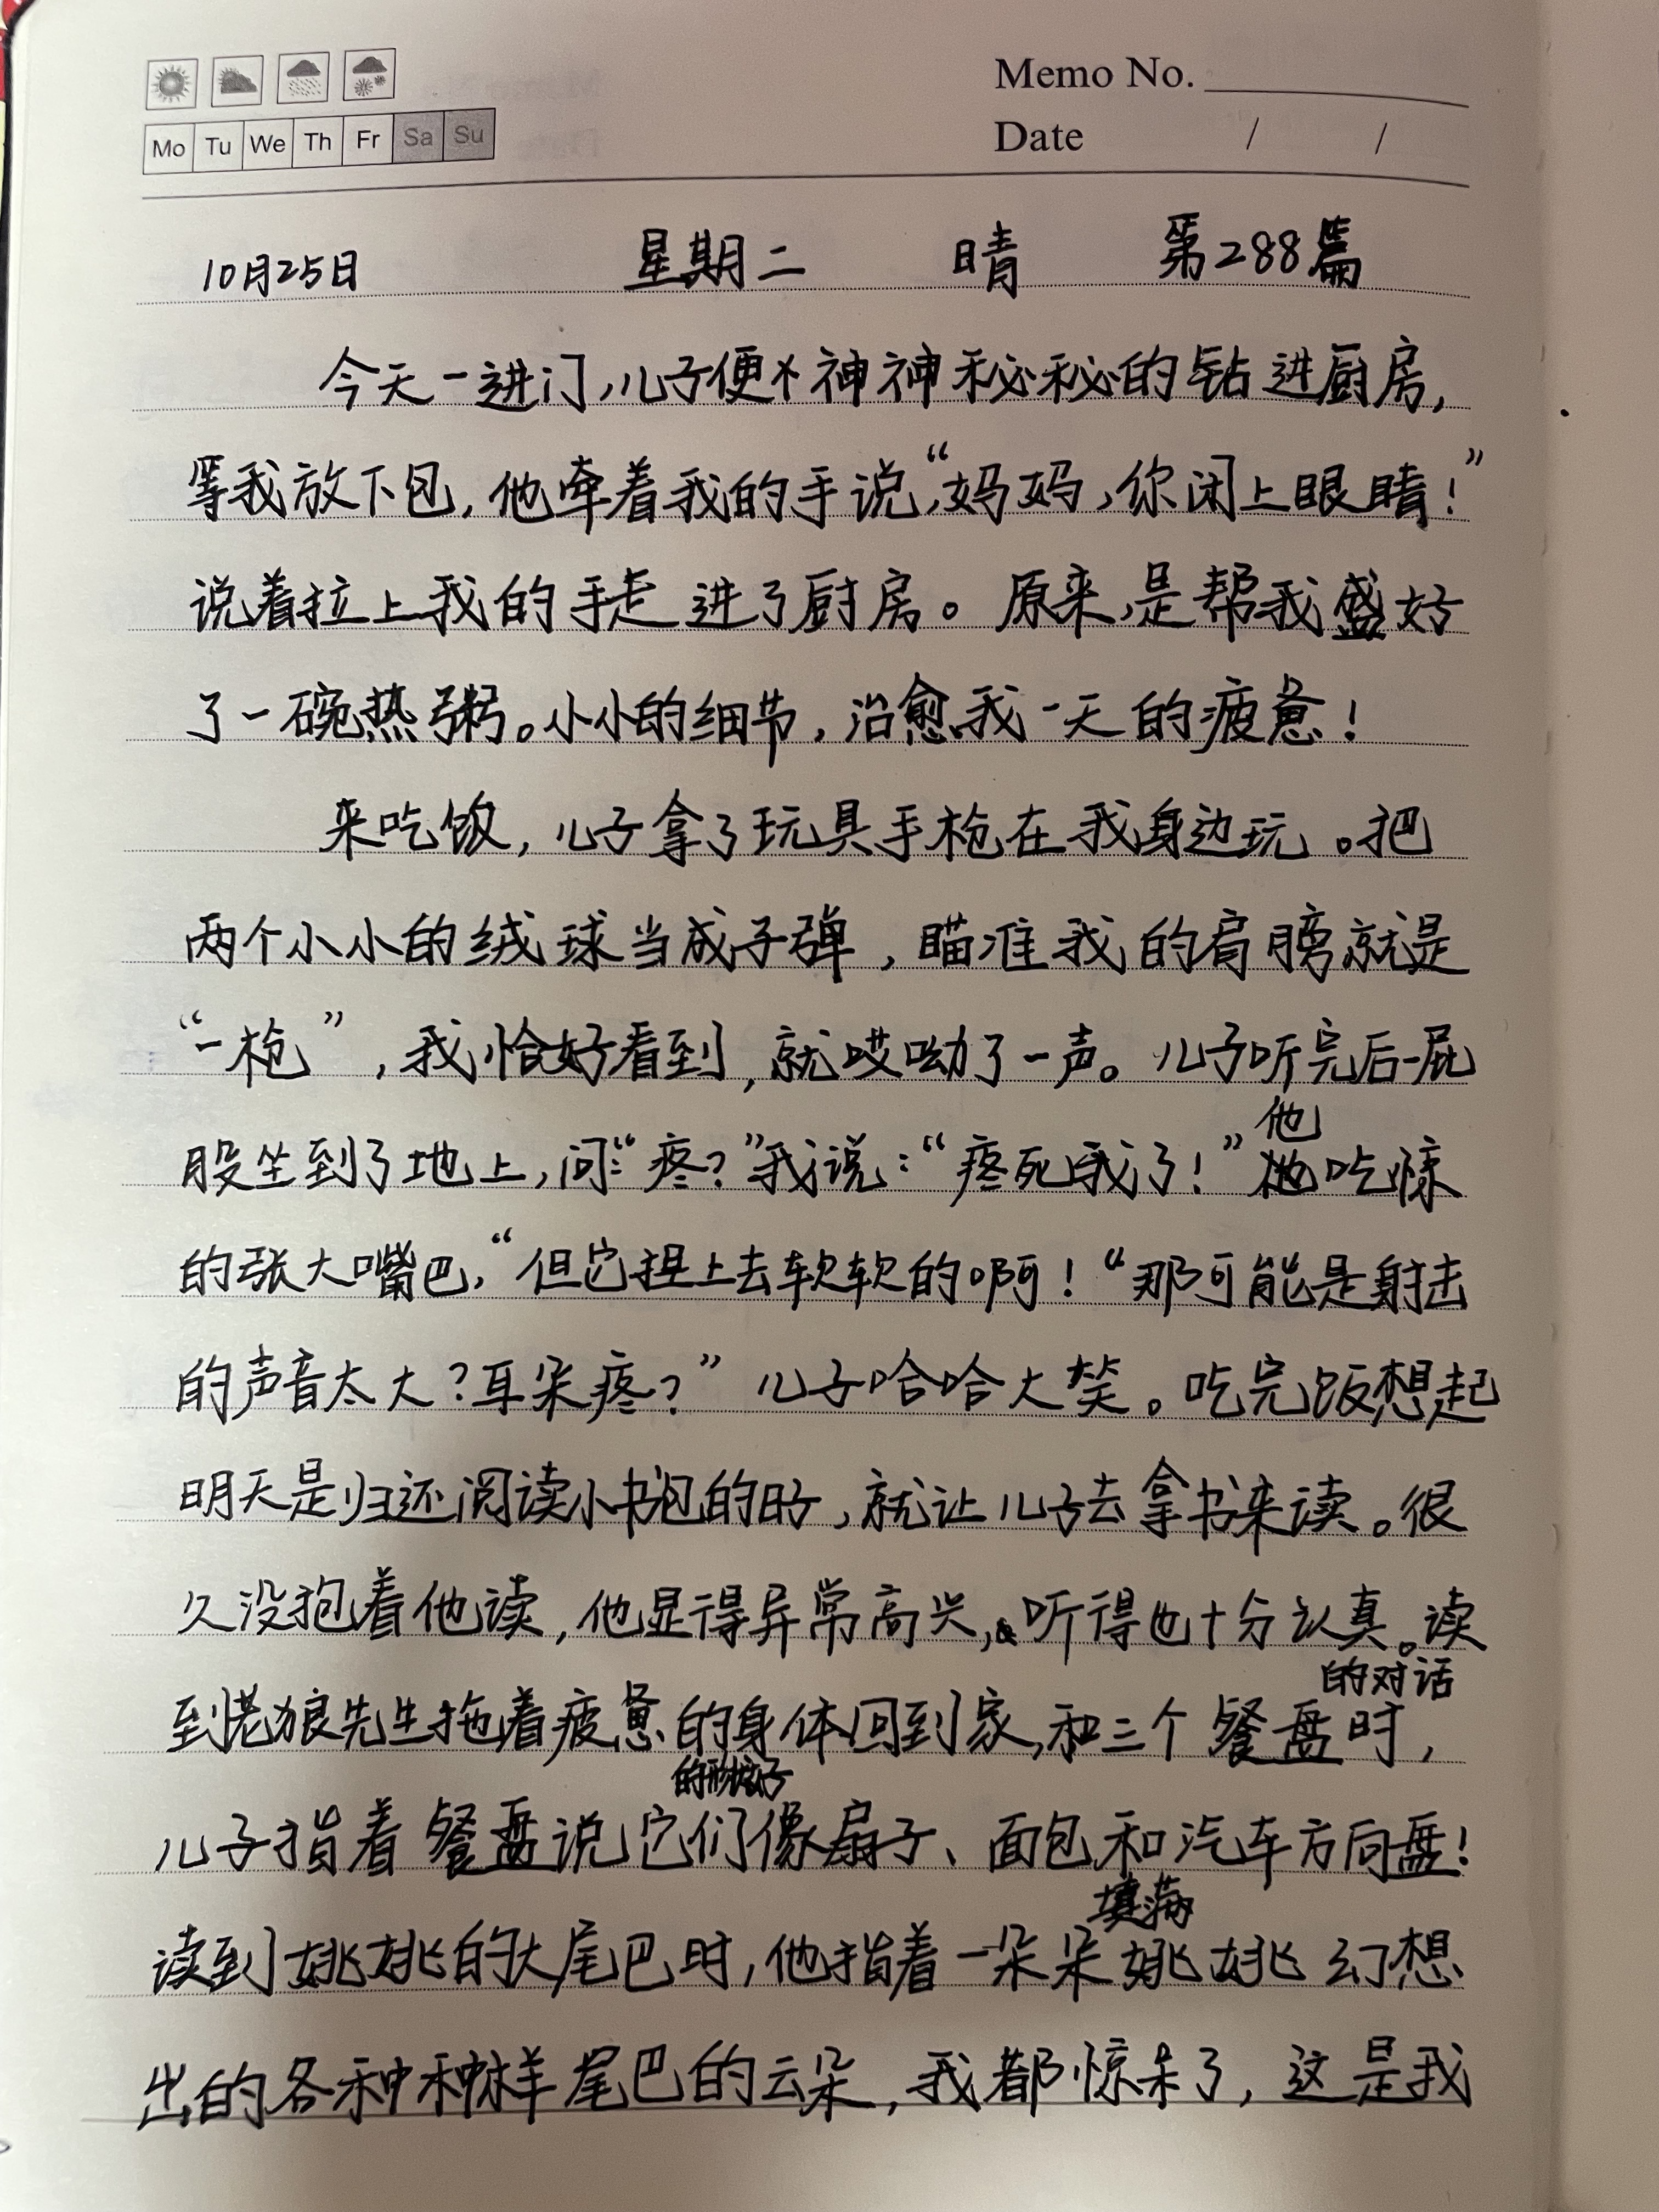 Memo No.
Mo Tu We Th Fr Sa Su
Date / /
10月25日 星期二 晴 第288篇
今天一进门,儿子便神神秘秘的钻进厨房,
等我放下包,他牵着我的手说,“妈妈,你闭上眼睛!”
说着拉上我的手走进了厨房。原来,是帮我盛好
了一碗热粥。小小的细节,治愈我一天的疲惫!
来吃饭,儿子拿了玩具手枪在我身边玩。把
两个小小的绒球当成子弹,瞄准我的肩膀就是
“一枪”,我恰好看到,就哎呦了一声。儿子听完后一屁
股坐到了地上,问:“疼?”我说:“疼死我了!”他吃惊
的张大嘴巴,“但它捏上去软软的啊!“那可能是射击
的声音太大?耳朵疼?”儿子哈哈大笑。吃完饭想起
明天是归还阅读小书包的日子,就让儿子去拿书来读。很
久没抱着他读,他显得异常高兴,听得也十分认真。读
到老狼先生拖着疲惫的身体回到家,和三个餐盘的对话时,
儿子指着餐盘说它们的形状好像扇子、面包和汽车方向盘!
读到姚姚的大尾巴时,他指着一朵朵填满姚姚幻想
出的各种种样尾巴的云朵,我都惊呆了,这是我